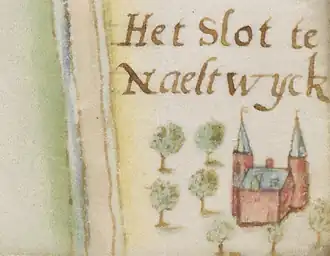 Het Slot te
Naeltwyck